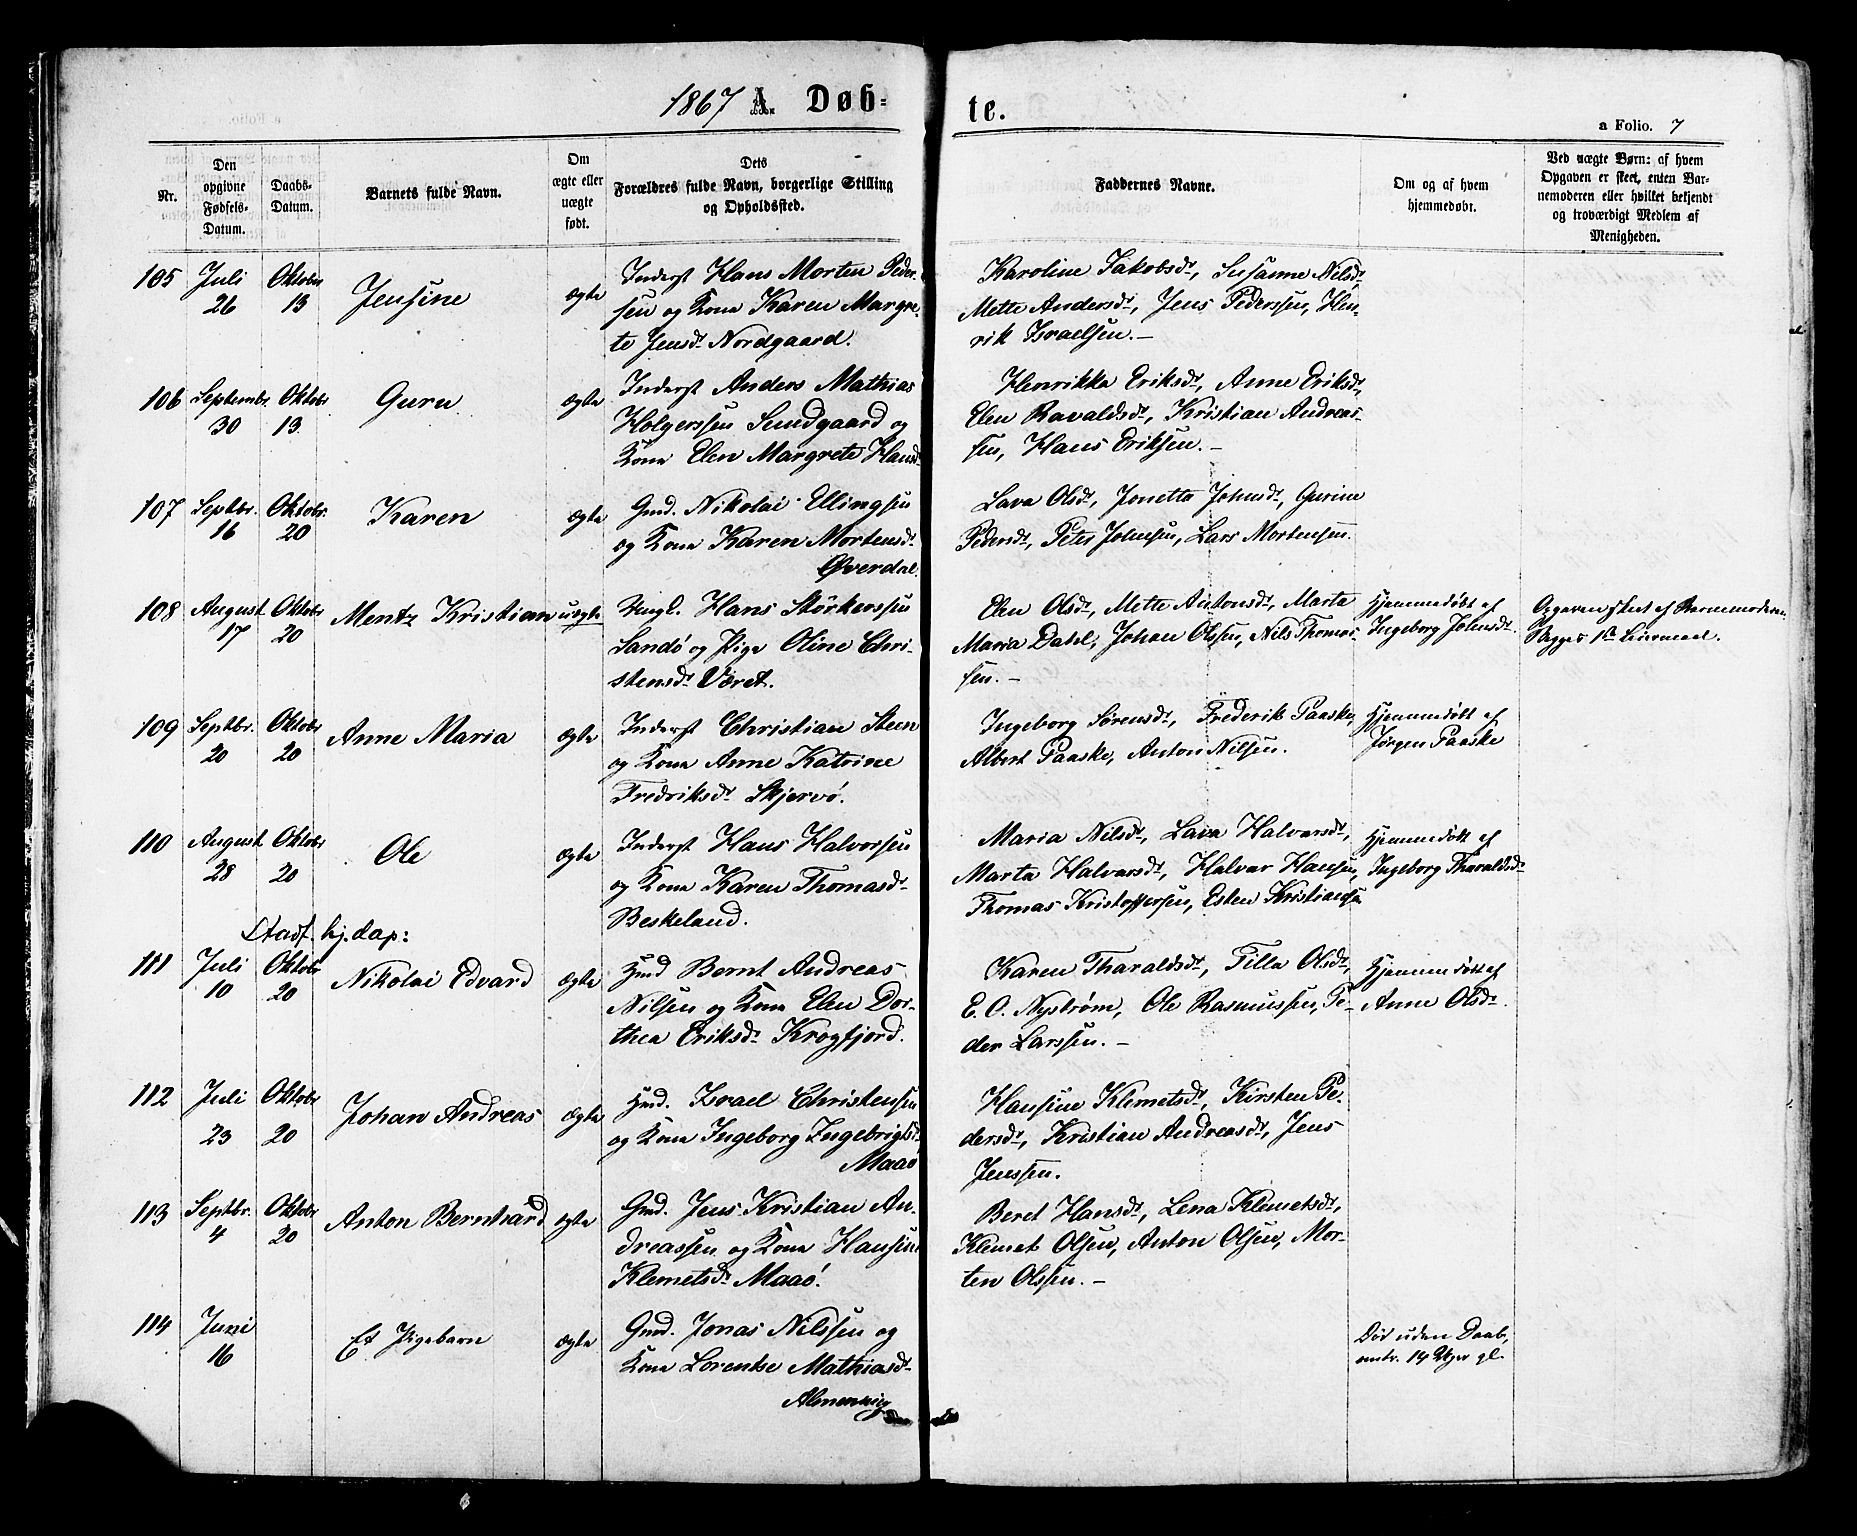 1867 A. Døb-
te.
a Folio. 7
Nr.
Den opgivne Fødsels-Datum.
Daabs-Datum.
Barnets fulde Navn.
Om ægte eller uægte født.
Dets Forældres fulde Navn, borgerlige Stilling og Opholdssted.
Faddernes Navne.
Om og af hvem hjemmedøbt.
Ved uægte Børn: af hvem Opgaven er skeet, enten Barnemoderen eller hvilket bekjendt og troværdigt Medlem af Menigheden.
105 Juli 26 Oktobr 13 Jensine ægte
Inderst Hans Morten Peder-
sen og Kona Karen Margre-
te Jensdr Nordgaard.
Karoline Jakobsdr, Susanne Nilsdr,
Mette Andersdr, Jens Pederssen, Hen-
rik Israelsen. –
106 Septembr 30 Oktobr 13. Guru ægte
Inderst Anders Mathias
Holgerssen Sundgaard og
Kona Elen Margrete Hansdr
Henrikka Eriksdr, Anne Eriksdr,
Elen Ravaldsdr, Kristian Andreas-
sen, Hans Eriksen. –
107 Septbr. 16 Oktobr. 20 Karen ægte
Gmd. Nikolai Ellingsen
og Kona Karen Mortensdr
Øverdal.
Lava Olsdr, Jonetta Johnsdr, Gurine
Pedersdr, Peter Johnsen, Lars Mortensen.
108 August 17 Oktobr 20 Mentz Kristian uægte
Ungk. Hans Størkerssen
Sandø og Pige Oline Chri-
stensdr Været.
Elen Olsdr, Mette Antonsdr, Marta
Maria Dahl, Johan Olssen, Nils Thomas-
sen. –
Hjemmedøbt af
Ingeborg Johnsdr.
Opgaven skeet af Barnemoderen.
Begges 1ste Leiermaal.
109 Septbr. 20 Oktobr 20 Anne Maria ægte
Inderst Christian Steen
og Kona Anne Katrine
Fredriksdr Skjervø.
Ingeborg Sørensdr, Frederik Paaske,
Albert Paaske, Anton Nilsen.
Hjemmedøbt af
Jørgen Paaske
110 August 28 Oktobr 20 Ole ægte
Inderst Hans Halvorsen
og Kona Karen Thomasdr
Beskeland.
Maria Nilsdr, Lava Halvarsdr,
Marta Halvarsdr, Halvar Hansen,
Thomas Kristoffersen, Esten Kristiansen
Hjemmedøbt af
Ingeborg Tharaldsdr
Stadf. hj.dap:
111 Juli 10 Oktobr 20 Nikolai Edvard ægte
Hmd Bernt Andreas
Nilsen og Kona Elen Dor-
thea Eriksdr Krogfjord.
Karen Tharaldsdr, Tilla Olsdr,
E. O. Nystrøm, Ole Rasmussen, Pe-
der Larssen. –
Hjemmedøbt af
Anne Olsdr.
112 Juli 23 Oktobr 20 Johan Andreas ægte
Hmd. Israel Christensen
og Kona Ingeborg Ingebrigtsdr
Maaø
Hansine Klemetsdr, Kirsten Pe-
dersdr, Kristian Andreasdr, Jens
Jenssen.
113 Septbr. 4 Oktobr 20 Anton Bernhard ægte
Gmd. Jens Kristian An-
dreassen og Kona Hansine
Klemetsdr Maaø.
Beret Hansdr, Lena Klemetsdr,
Klemet Olsen, Anton Olsen, Mor-
ten Olssen. –
114 Juni 16 Et Pigebarn ægte
Gmd. Jonas Nilssen og
Kona Lorentse Mathiasdr
Almenning
Død uden Daab,
omtr. 14 Uger gl.